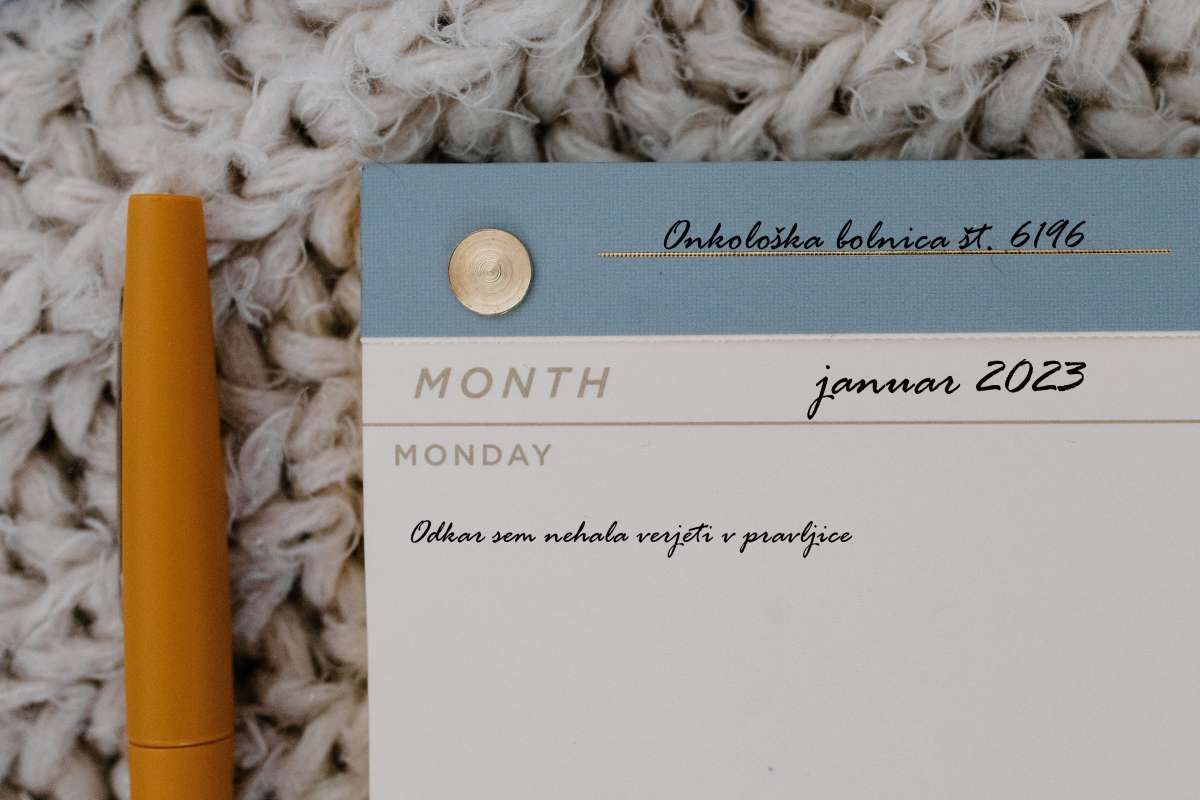 Onkološka bolnica št. 6196
MONTH januar 2023
MONDAY
Odkar sem nehala verjeti v pravljice